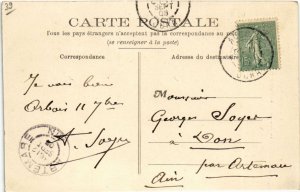 39
CARTE POSTALE
Tous les pays étrangers n'acceptent pas la correspondance au recto
(se renseigner à la poste)
Correspondance
Adresse du destinataire
Je vais bien
Arbois 11 7bre
A. Soyer
Monsieur
Georges Soyer
à Don
par Artemare
Ain
ARTEMARE
AIN
SEPT